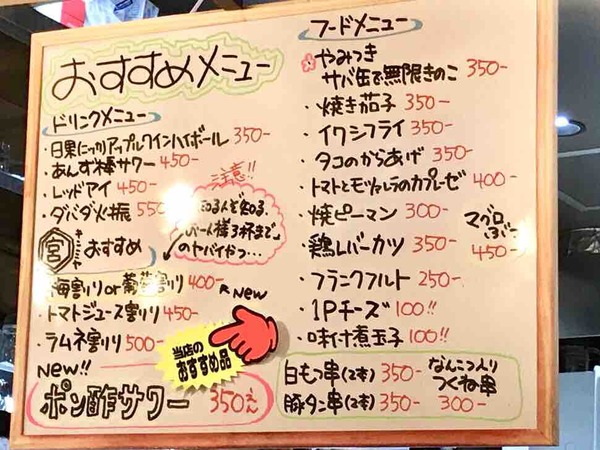 おすすめメニュー
ドリンクメニュー
・日果(にっか)アップルワインハイボール 350-
・あんず棒サワー 450-
・レッドアイ 450-
・ダバダ火振 550
注意!!
知る人ぞ知る、
お一人様3杯まで
のヤバイやつ…
宮 おすすめ
梅割りor葡萄割り 400-
New
・トマトジュース割り 450-
・ラムネ割り 500-
当店の
おすすめ品
New!!
ポン酢サワー 350えん
フードメニュー
やみつき
サバ缶で無限きのこ 350-
・焼き茄子 350-
・イワシフライ 350-
・タコのからあげ 350-
・トマトとモッツァレラのカプレーゼ 400-
・焼ピーマン 300-
マグロ
450-
・鶏レバーカツ 350-
・フランクフルト 250-
・1Pチーズ 100!!
・味付煮玉子 100!!
白もつ串(2本) 350-
豚タン串(2本) 350-
なんこつ入り
つくね串
300-